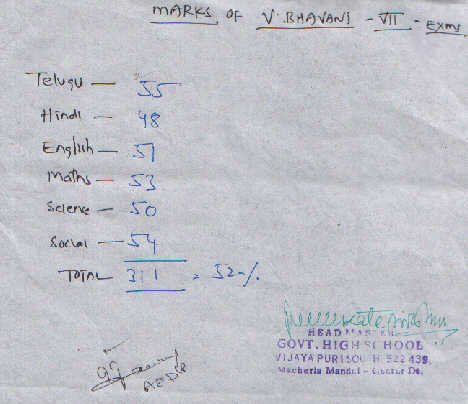 MARKS OF V. BHAVANI - VII - EXMS
Telugu — 55
Hindi — 48
English — 51
Maths — 53
Science — 50
Social — 54
TOTAL 311 = 52%
HEAD MASTER
GOVT. HIGH SCHOOL
VIJAYAPURI SOUTH 522 439.
Macherla Mandal - Guntur Dt.